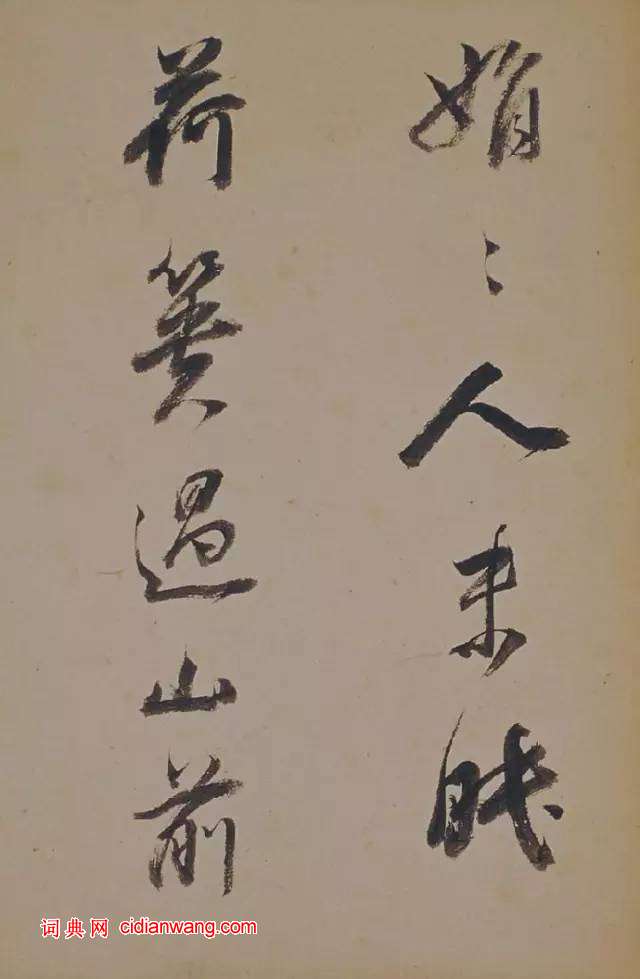 娟〻人未眠
荷蒉過山前
词典网 cidianwang.com